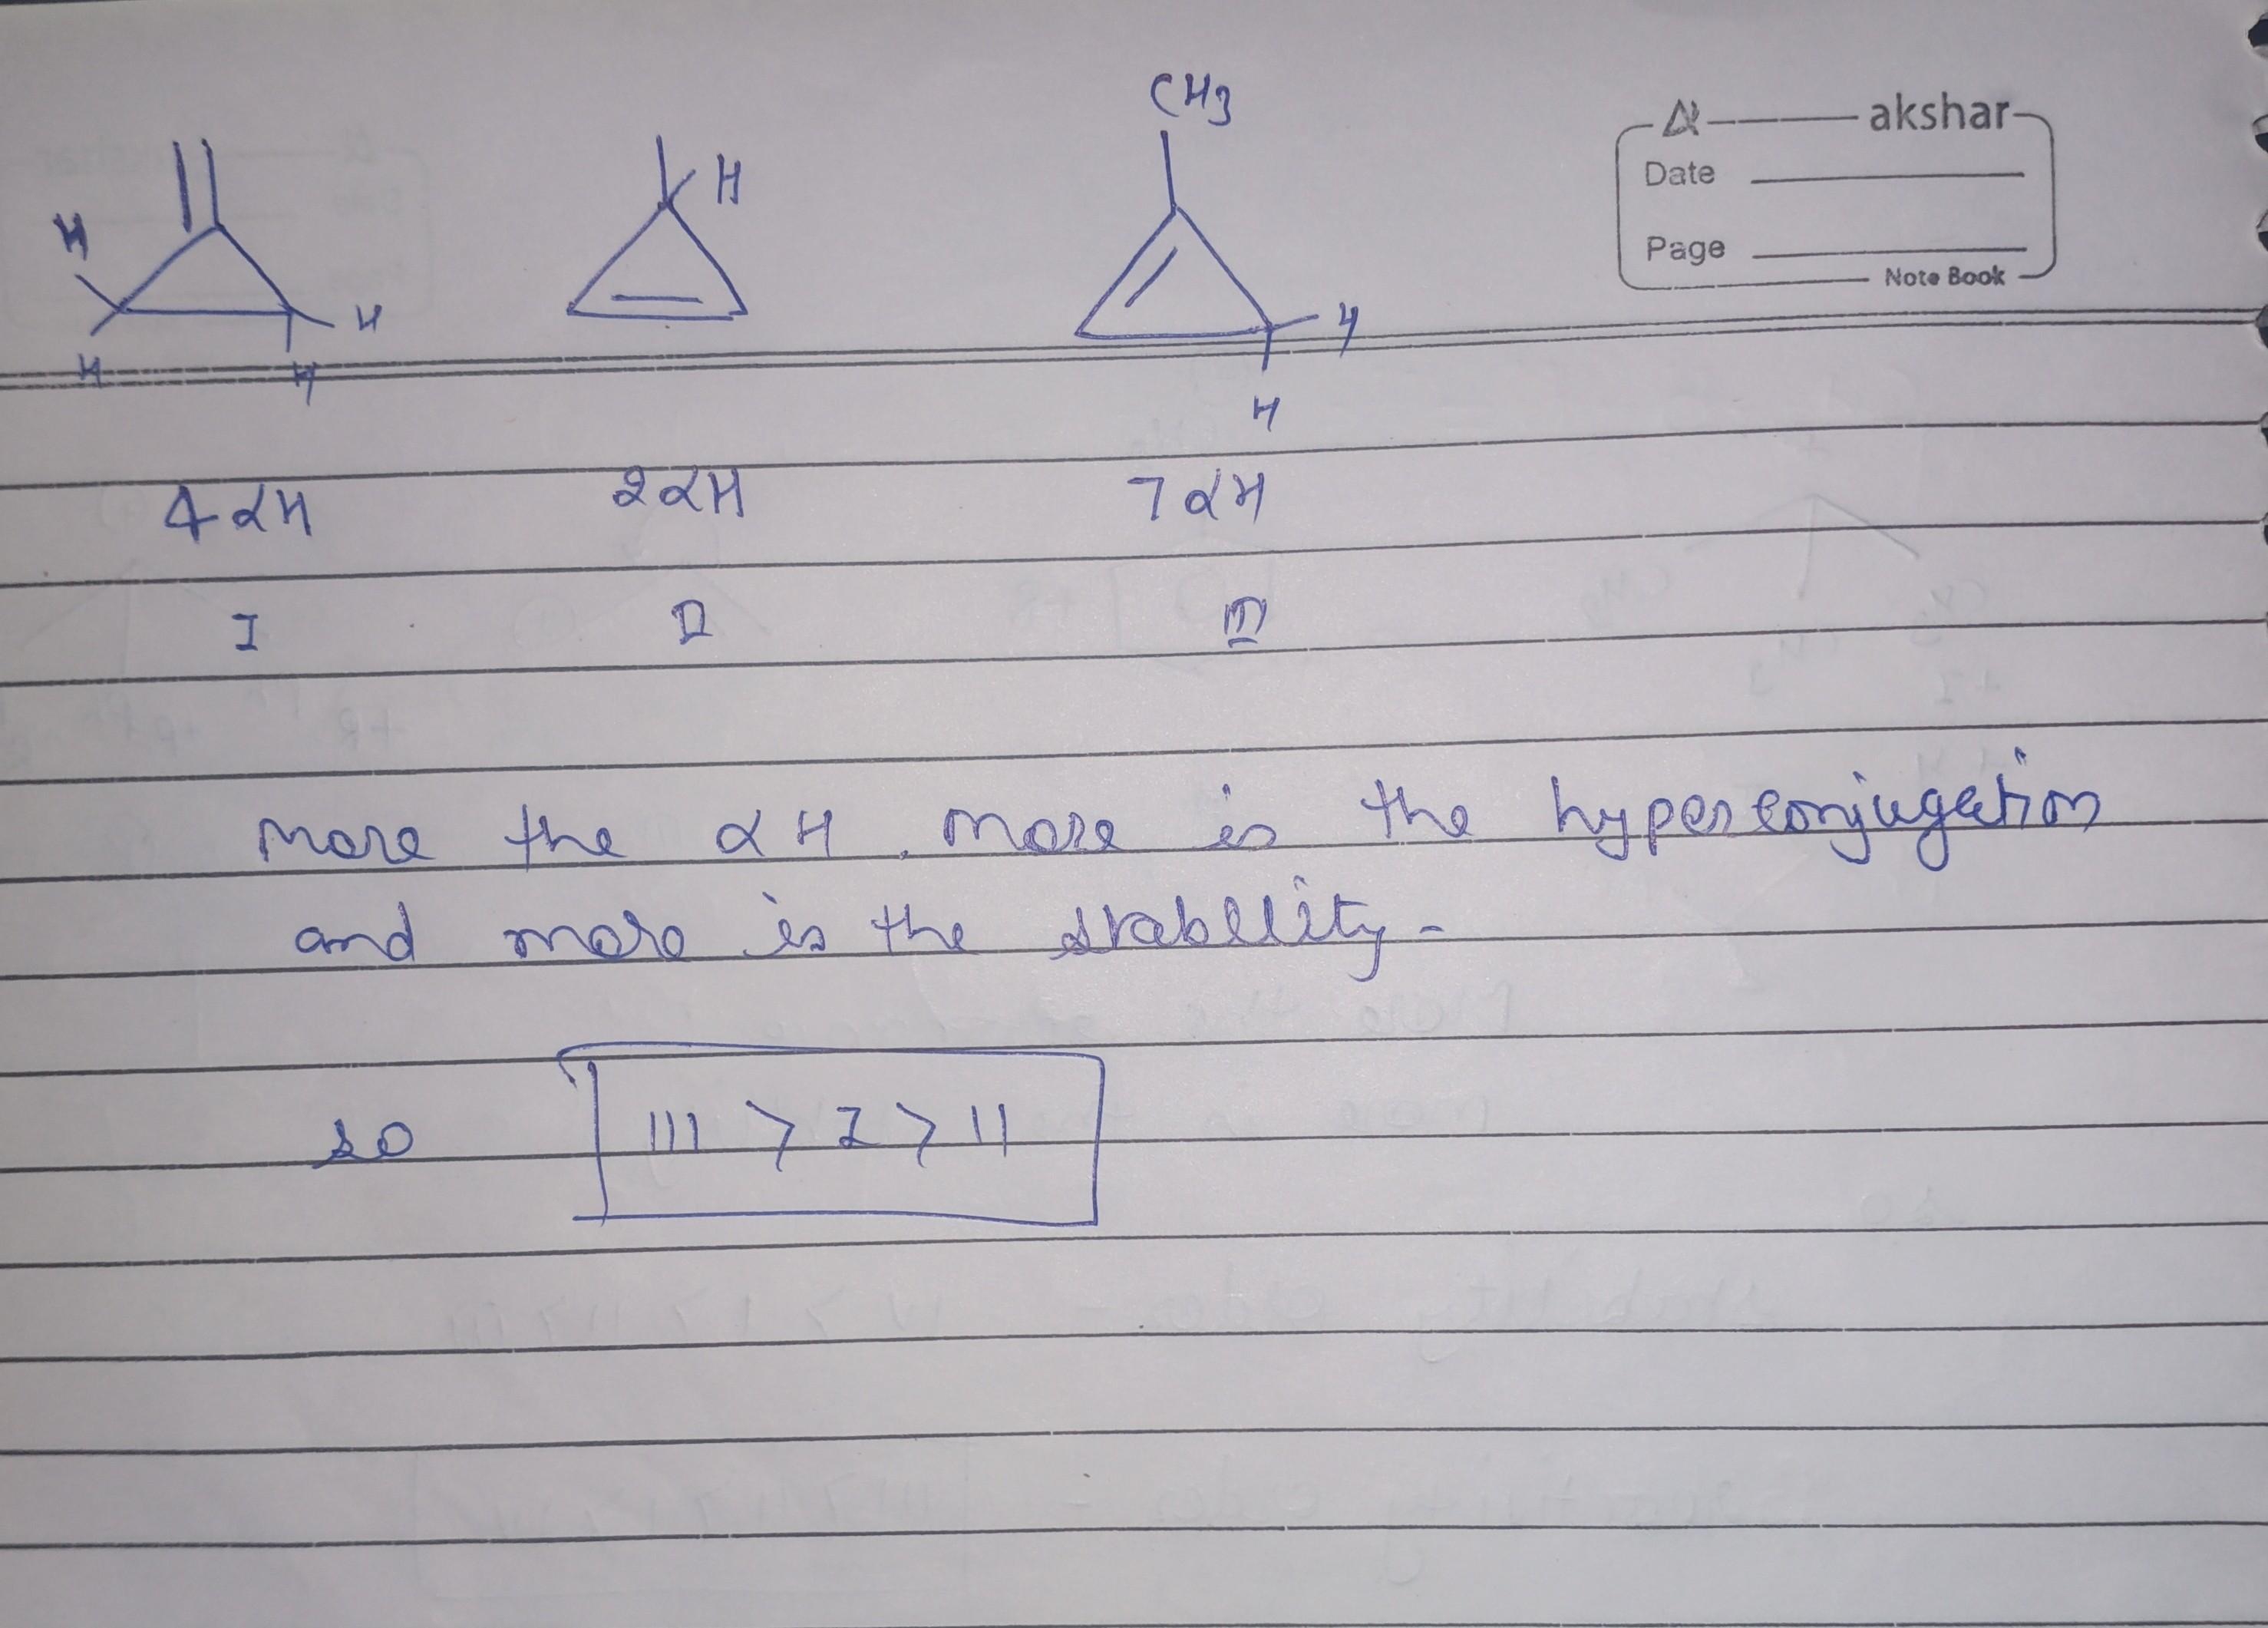 CH3
akshar
H
H
Date
H
H
Page
Note Book
H
H
H
4αH
2αH
7αH
I
II
III
more the αH, more is the hyperconjugation
and more is the stabllity-
so III > I > II